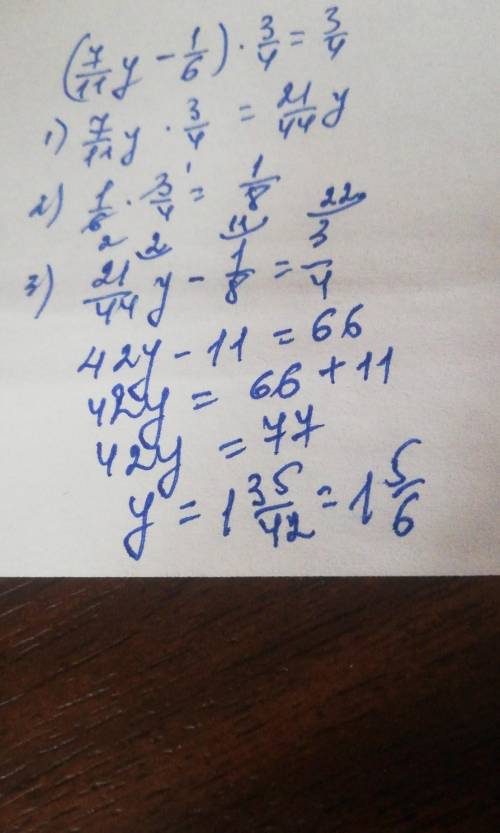 (7/11 y - 1/6) · 3/4 = 3/4
1) 7/11 y · 3/4 = 21/44 y
2) 1/6 · 3/4 = 1/8
2 2 1 11 22
3) 21/44 y - 1/8 = 3/4
42y - 11 = 66
42y = 66 + 11
42y = 77
y = 1 35/42 = 1 5/6